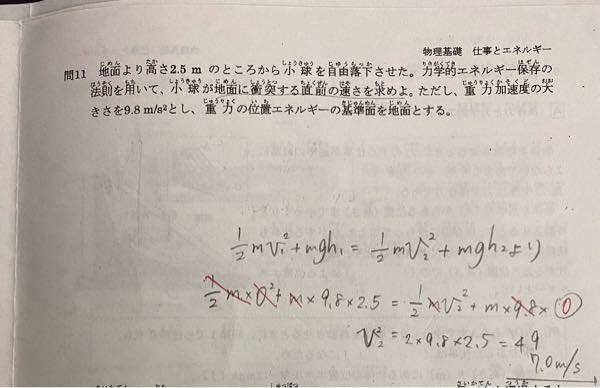 物理基礎 仕事とエネルギー
問11 地面より高さ2.5 m のところから小球を自由落下させた。力学的エネルギー保存の
法則を用いて、小球が地面に衝突する直前の速さを求めよ。ただし、重力加速度の大
きさを9.8 m/s²とし、重力の位置エネルギーの基準面を地面とする。
½mv₁²+mgh₁ = ½mv₂²+mgh₂より
½m×0²+m×9.8×2.5 = ½mv₂²+m×9.8×0
v₂²=2×9.8×2.5=49
7.0m/s